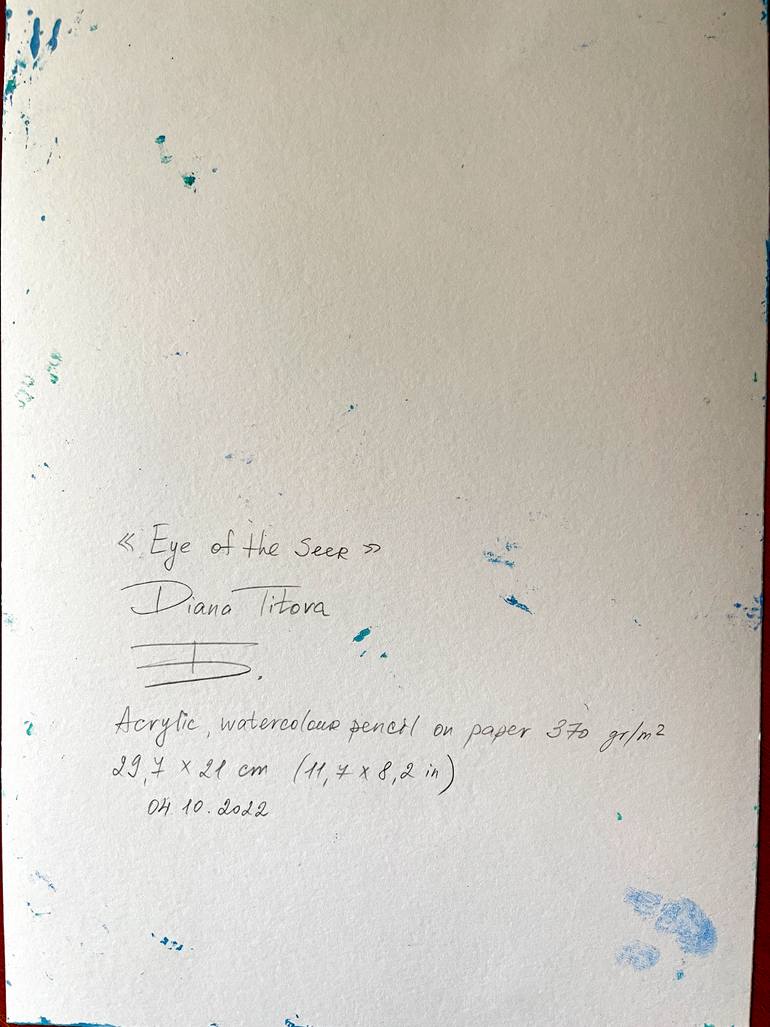 « Eye of the Seer »
Diana Titova
Acrylic, watercolour pencil on paper 370 gr/m²
29,7 × 21 cm (11,7 × 8,2 in)
04.10.2022